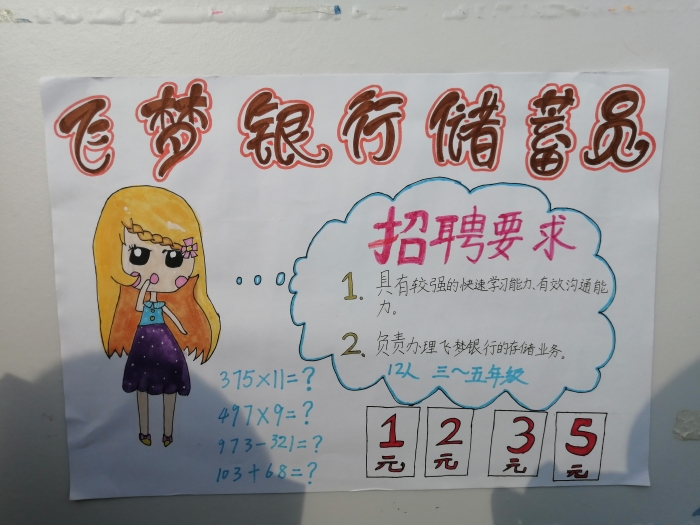 飞梦银行储蓄员
招聘要求
1. 具有较强的快速学习能力、有效沟通能
力。
2. 负责办理飞梦银行的存储业务。
12人 三～五年级
375×11=?
497×9=?
973-321=?
103+68=?
1元 2元 3元 5元